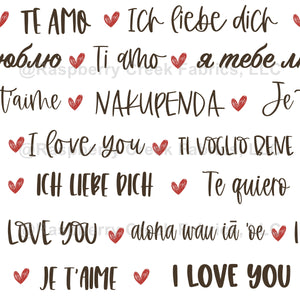 TE AMO Ich liebe dich
люблю Ti amo я тебе л
t'aime NAKUPENDA Je
I love you TI VOGLIO BENE
ICH LIEBE DICH Te quiero
LOVE YOU aloha wau iā 'oe I
JE T'AIME I LOVE YOU
@Raspberry Creek Fabrics, LLC